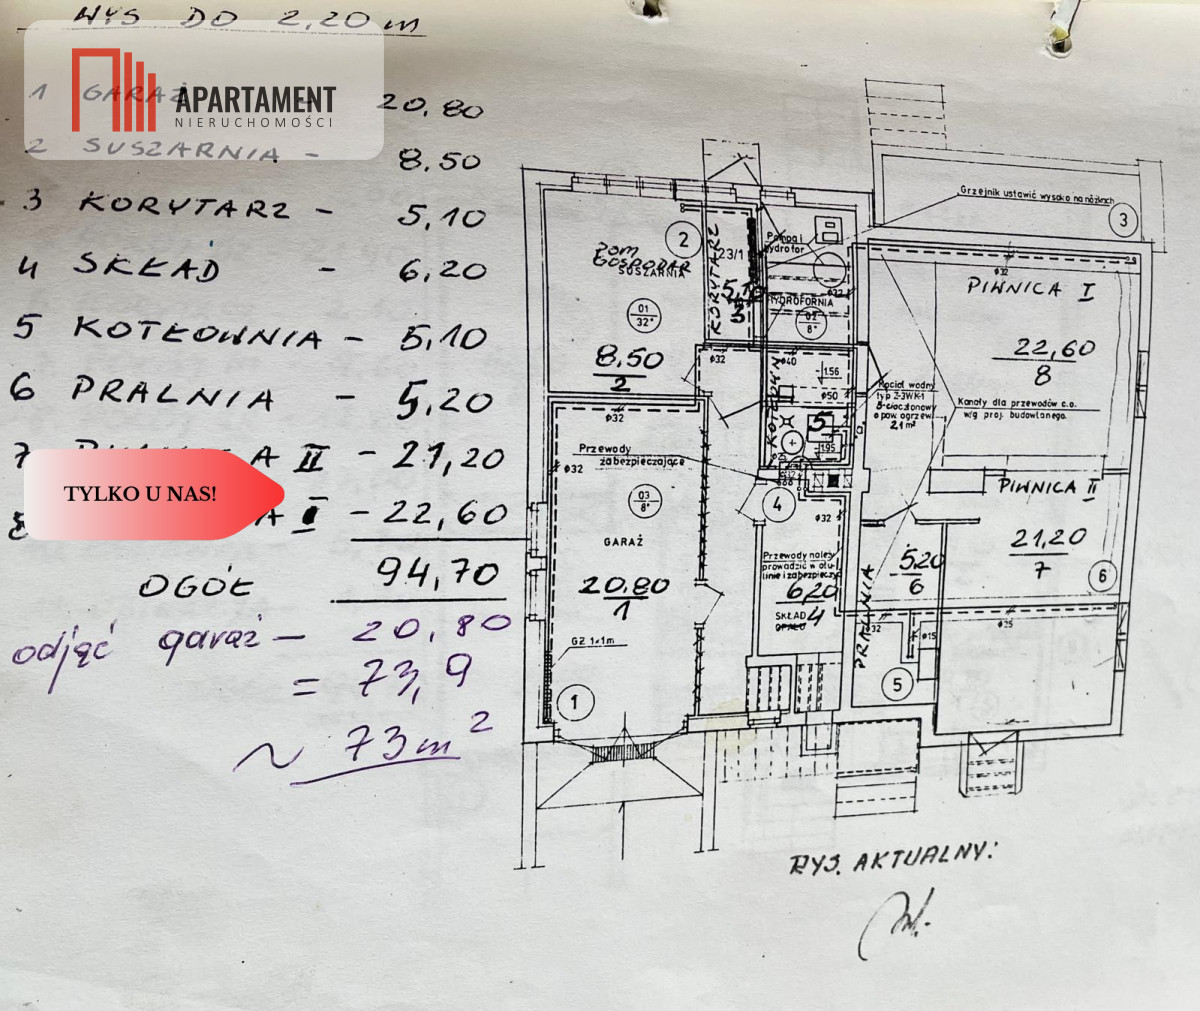 WYS DO 2,20 m
APARTAMENT
NIERUCHOMOŚCI
1 GARAŻ 20,80
2 SUSZARNIA - 8.50
3 KORYTARZ - 5,10
4 SKŁAD - 6,20
5 KOTŁOWNIA - 5,10
6 PRALNIA - 5,20
7 II - 21,20
TYLKO U NAS!
8 A I - 22,60
OGÓŁ 94,70
odjąć garaż - 20,80
= 73,9
~ 73 m²
Grzejnik ustawić wysoko na nóżkach
3
2
KORYTARZ
23/1
5,10
3
GOSPODAR
SUSZARNIA
01
32°
8,50
2
Pompa i
hydrofor
φ32
HYDROFORNIA
02
8°
φ32
28
PIWNICA I
22,60
8
φ32
φ40
1.56
φ50
5
1.95
Kocioł wodny
typ Z-3WK-1
8-cioczłonowy
o pow. ogrzew.
2,1 m²
Kanały dla przewodów c.o.
wg proj. budowlanego.
φ32
Przewody
zabezpieczające
φ32
03
8°
GARAŻ
20.80
1
GZ 1×1m
1
4
φ32
Przewody należy
prowadzić w otu-
linie i zabezpieczyć
6,20
4
SKŁAD
OPAŁU
PRALNIA
5.20
6
PIWNICA II
21,20
7
6
φ25
φ15
5
RYS. AKTUALNY: